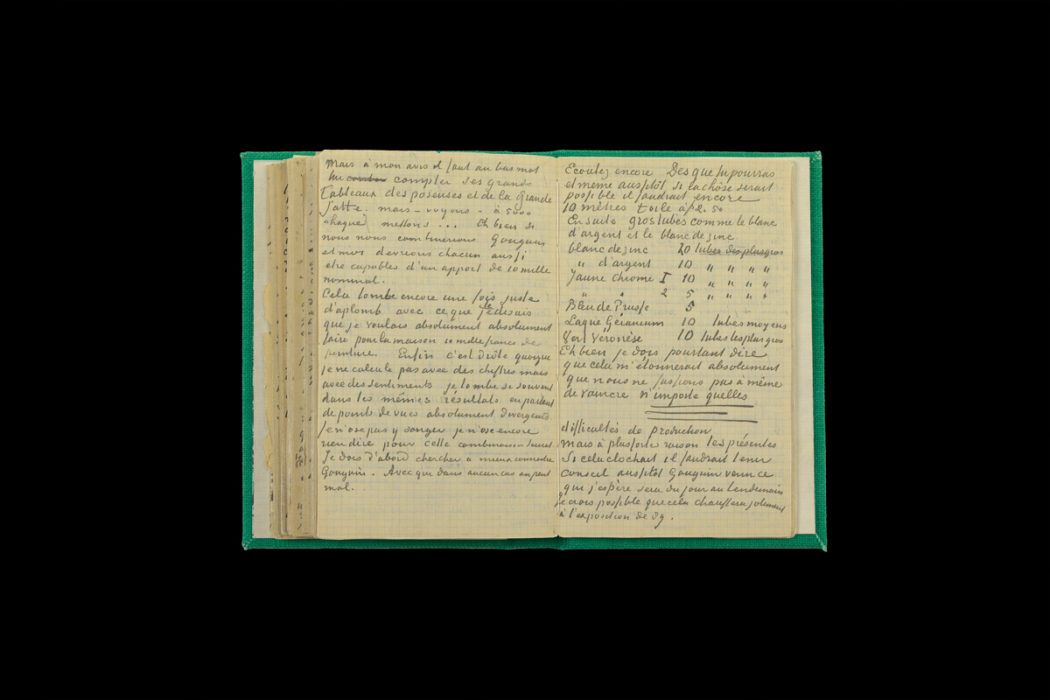 Mais à mon avis il faut au bas mot
lui compter ses grands
tableaux des poseuses et de la grande
Jatte. mais – voyons – à 5000
chaque mettons ... Eh bien si
nous nous combinerions Gauguin
et moi devrions chacun aussi
etre capables d'un apport de 10 mille
nominal.
Cela tombe encore une fois juste
d'aplomb avec ce que je disais
que je voulais absolument absolument
faire pour la maison 10 mille francs de
peinture. Enfin c'est drôle quoique
je ne calcule pas avec des chiffres mais
avec des sentiments je tombe si souvent
dans les mêmes résultats en partant
de points de vues absolument divergents
Je n'ose pas y songer je n'ose encore
rien dire pour cette combinaison
Je dois d'abord chercher à mieux connaitre
Gauguin. Avec qui dans aucun cas on peut
mal.
Ecoutez encore Des que tu pourras
et meme aussitôt si la chose serait
possible il faudrait encore
10 mètres toile à fr 2.50
Ensuite gros tubes comme le blanc
d'argent et le blanc de zinc
blanc de zinc 20 tubes des plus gros
" d'argent 10 " " " "
Jaune chrome I 10 " " " "
" " 2 5 " " " "
Bleu de Prusse 5
Laque Géranium 10 tubes moyens
Vert Véronèse 10 tubes les plus gros
Eh bien je dois pourtant dire
que cela m'étonnerait absolument
que nous ne fussions pas à même
de vaincre n'importe quelles
difficultés de production
mais à plus forte raison les présentes
Si cela clochait il faudrait tenir
conseil aussitôt Gauguin venu ce
qui j'espère sera du jour au lendemain
je crois possible que cela chauffera joliment
à l'exposition de 89.